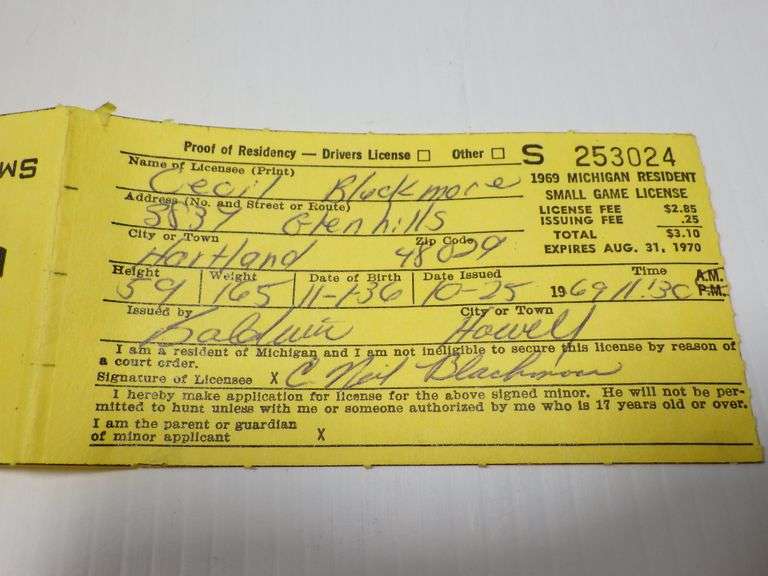 SM
Proof of Residency — Drivers License □ Other □ S 253024
Name of Licensee (Print)
Cecil Blackmore
1969 MICHIGAN RESIDENT
SMALL GAME LICENSE
Address (No. and Street or Route)
5839 Glenhills
LICENSE FEE $2.85
ISSUING FEE .25
TOTAL $3.10
EXPIRES AUG. 31, 1970
City or Town Zip Code
Hartland 48029
Height Weight Date of Birth Date Issued Time A.M.
59 165 11-1-36 10-25 1969 11:30 P.M.
Issued by City or Town
Baldwin Howell
I am a resident of Michigan and I am not ineligible to secure this license by reason of
a court order.
Signature of Licensee X C. Neil Blackmore
I hereby make application for license for the above signed minor. He will not be per-
mitted to hunt unless with me or someone authorized by me who is 17 years old or over.
I am the parent or guardian
of minor applicant X